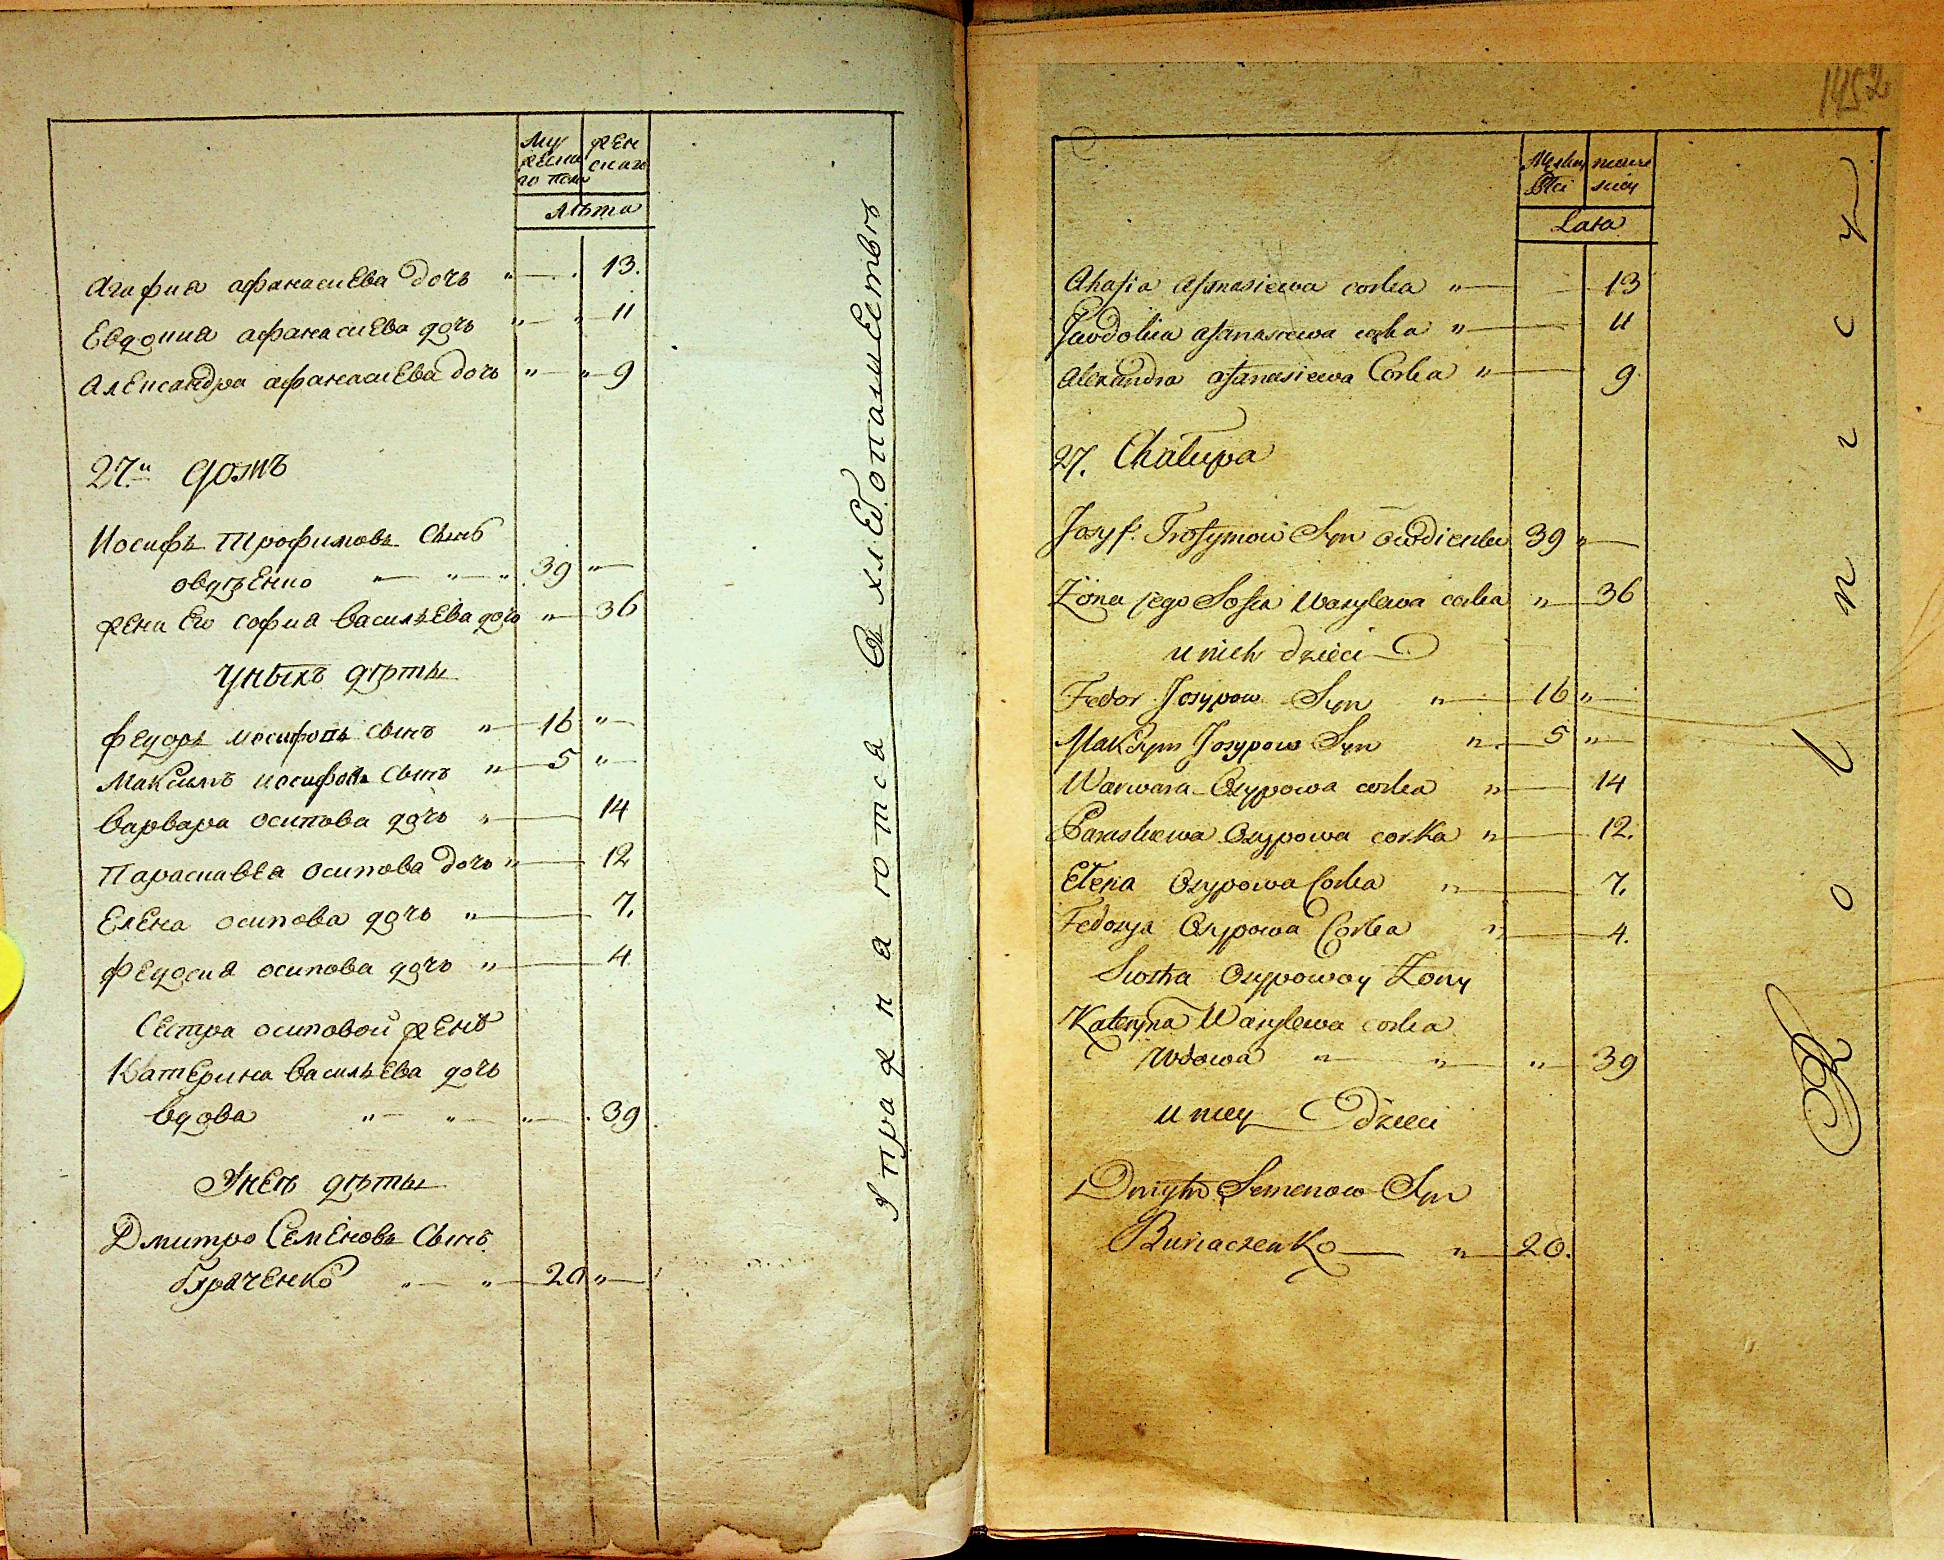 Му
жеска
го пола
жен
скаго
лѣта
Агафия афанасиева дочь „ — . 13.
Евдокия афанасиева дочь „ — „ 11
Александра афанасиева дочь „ — „ 9
27.й домъ
Иосифъ Трофимовъ Сынъ
овдѣенко „ — „ — „ 39 „ —
жена Его софия васильева дочь „ — 36
У ныхъ дѣты
федоръ иосифовъ сынъ „ — 16 „ —
Максимъ иосифовъ сынъ „ — 5 „ —
варвара осипова дочь „ — 14
Параскавея осипова дочь „ — 12
Елена осипова дочь „ — 7.
федосия осипова дочь „ — 4
Сестра осиповой женѣ
Катерина васильева дочь
вдова „ — „ — „ — . 39
У неѣ дѣты
Дмитро Семеновъ Сынъ
буряченко „ — „ — 20 „ —
Упражняются в хлебопашестве
1452
Męskey
Płci
niewie
skiey
Lata
Ahafia afanasiewa corka „ — 13
Jewdokia afanasiewa corka „ — 11
Alexandra afanasiewa Corka „ — 9
27. Chałupa
Jozyf Trofymow Syn owdienko 39 „ —
Żona jego Sofia Wasylewa corka „ — 36
u nich dzieci
Fedor Josypow Syn „ — 16 „ —
Makszym Josypow Syn „ — 5 „ —
Warwara Osypowa corka „ — 14
Paraskewa Osypowa corka „ — 12.
Ełena Osypowa Corka „ — 7.
Fedosya Osypowa Corka „ — 4.
Siostra Osypowoy Żony
Kateryna Wasylewa corka
wdowa „ — „ — „ — 39
u niey Dzieci
Dmytro Semenow Syn
Buriaczenko — „ — 20.
Rolnicy